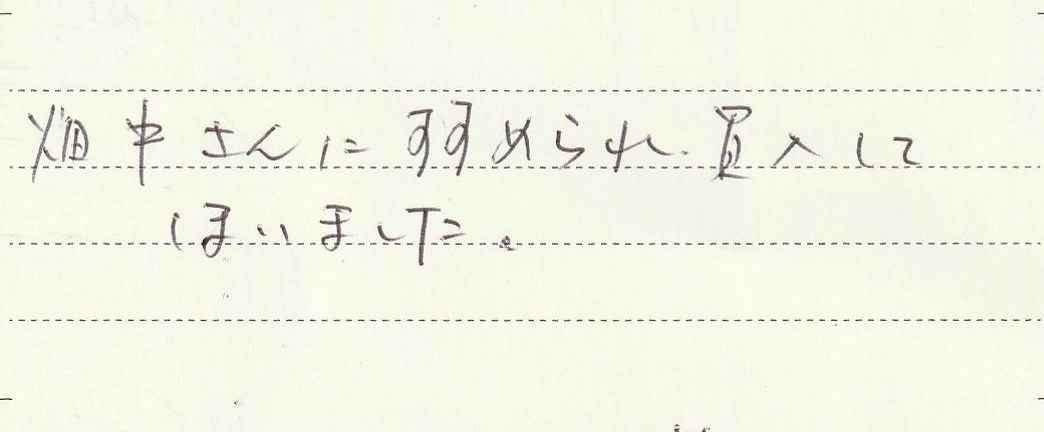 畑中さんにすすめられ買入して
しまいました。